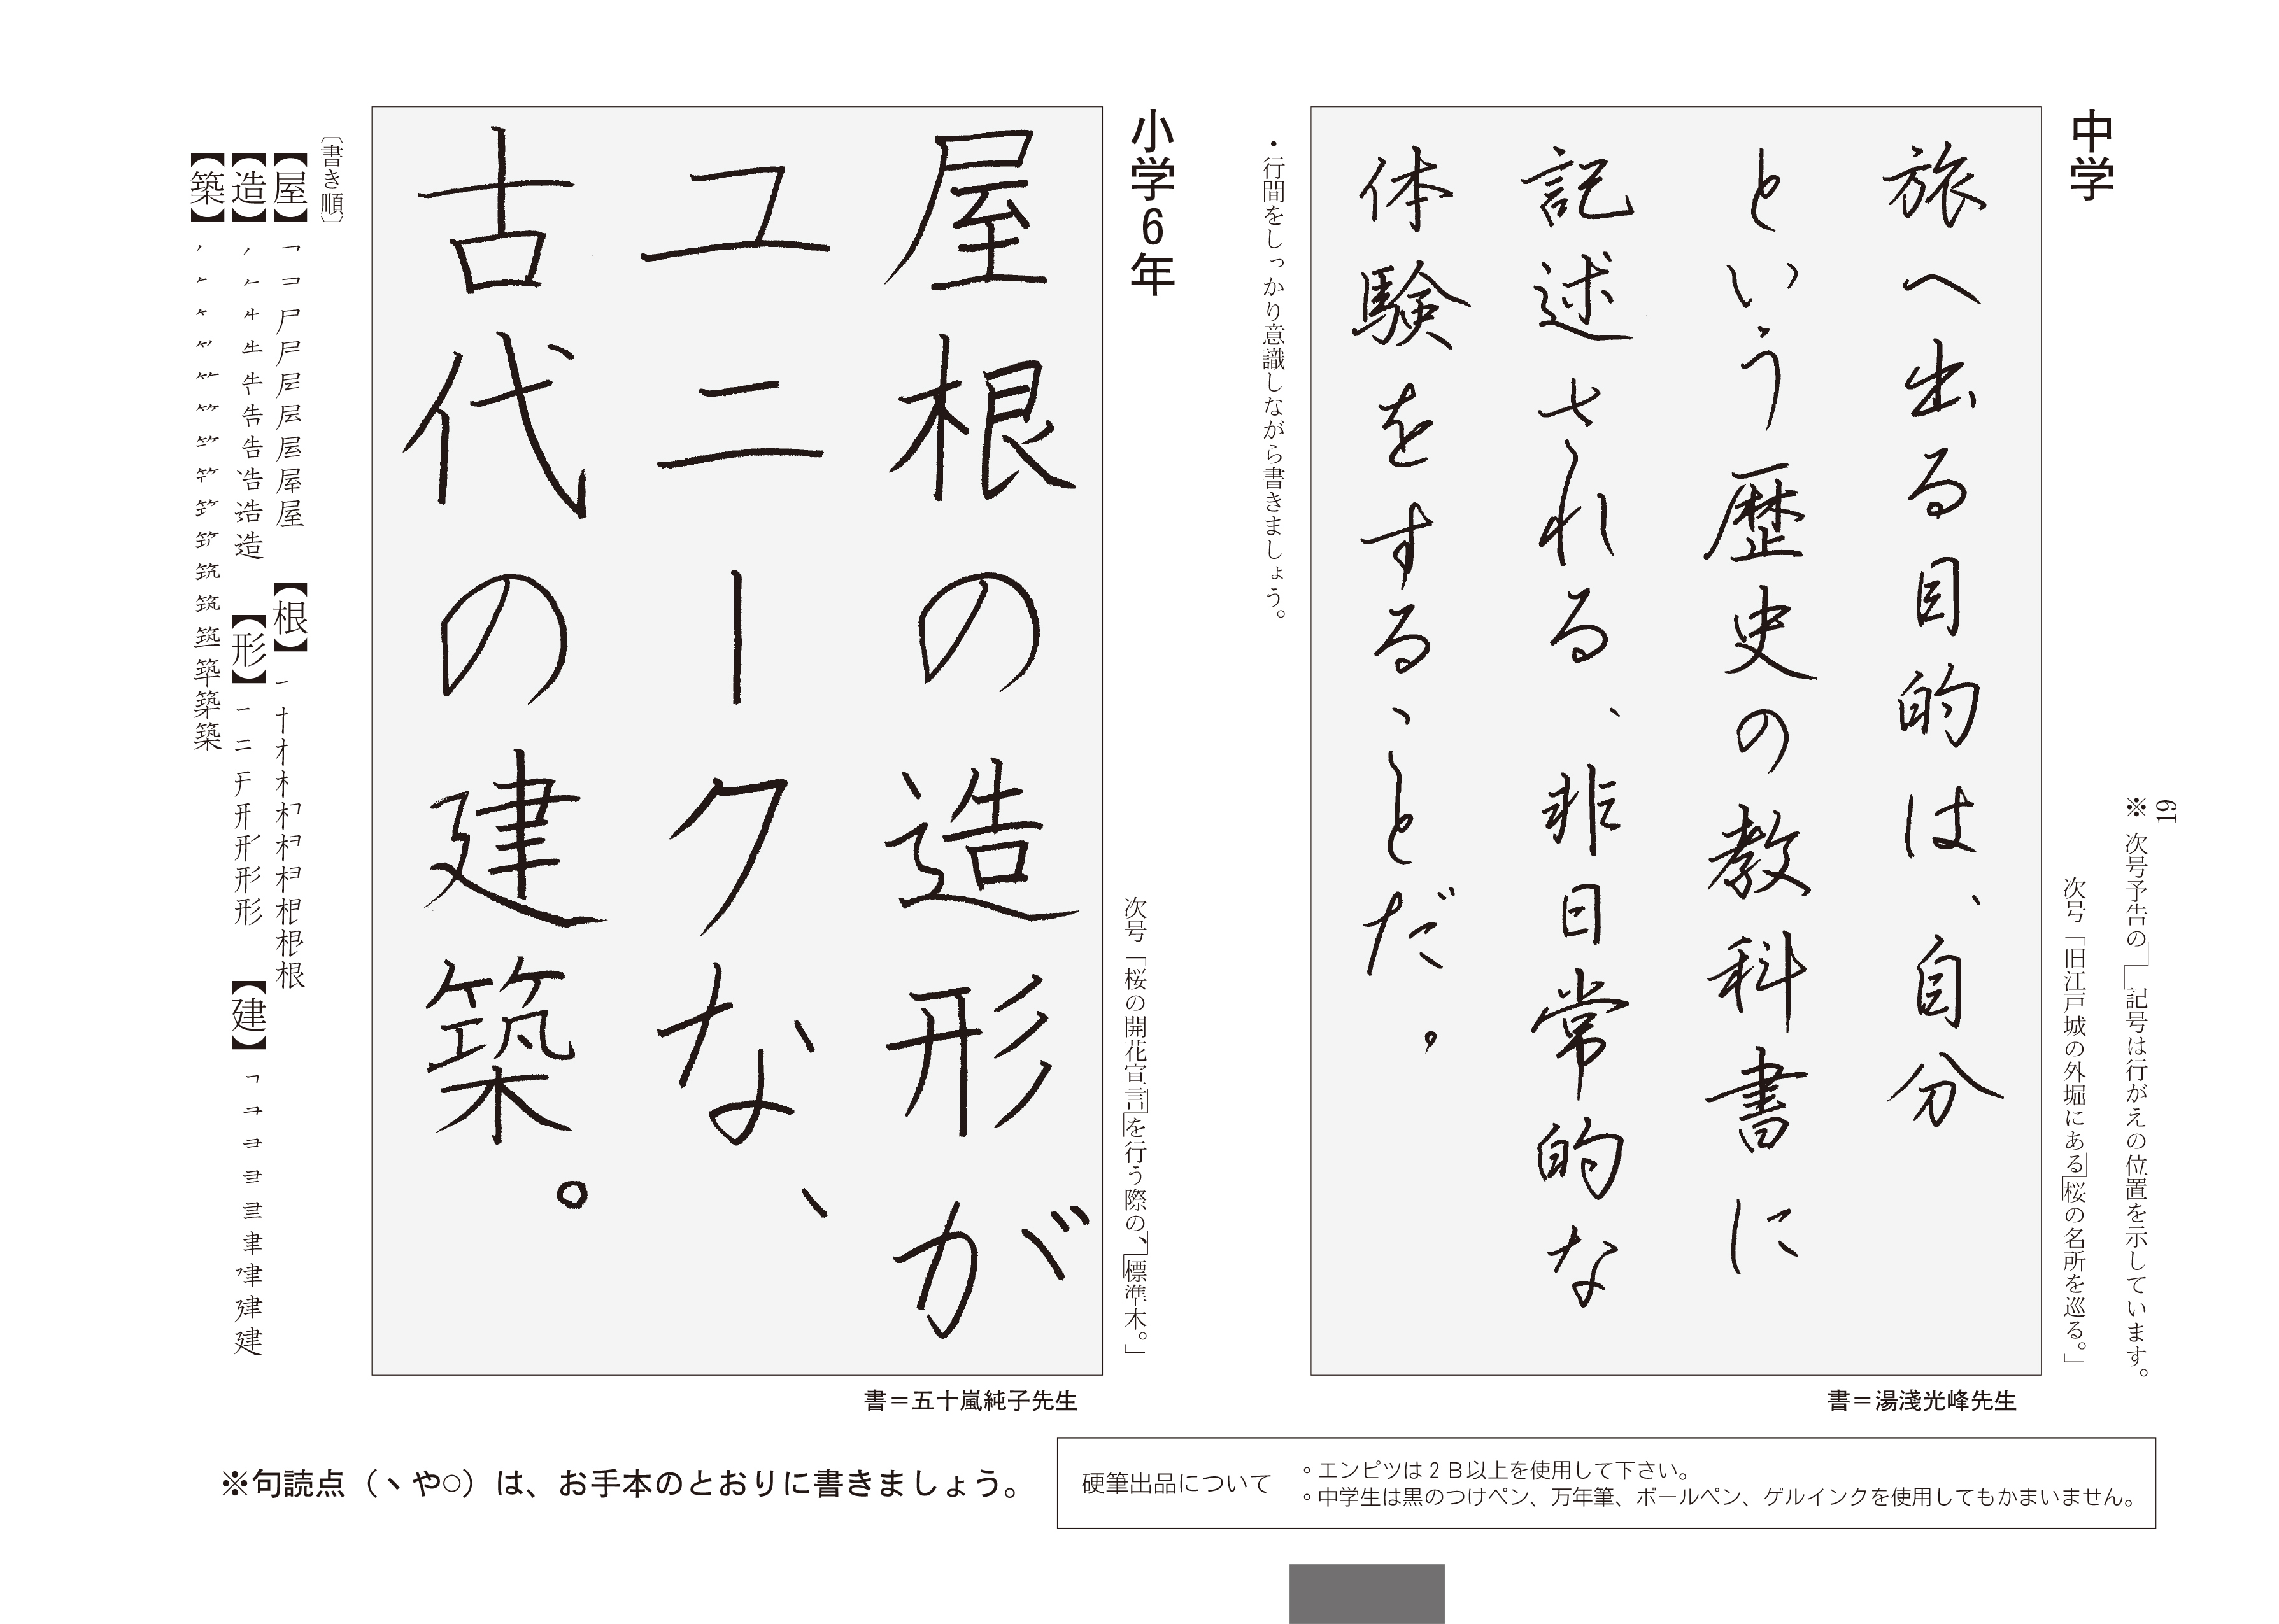 19
※次号予告の」「記号は行がえの位置を示しています。
次号「旧江戸城の外堀にある」「桜の名所を巡る。」
中学
旅へ出る目的は、自分
という歴史の教科書に
記述される、非日常的な
体験をすることだ。
書＝湯淺光峰先生
・行間をしっかり意識しながら書きましょう。
小学6年
次号「桜の開花宣言」「を行う際の、」「標準木。」
屋根の造形が
ユニークな、
古代の建築。
書＝五十嵐純子先生
〔書き順〕
【屋】
【根】
【造】
【形】
【建】
【築】
※句読点（、や○）は、お手本のとおりに書きましょう。
硬筆出品について
○エンピツは2B以上を使用して下さい。
○中学生は黒のつけペン、万年筆、ボールペン、ゲルインクを使用してもかまいません。